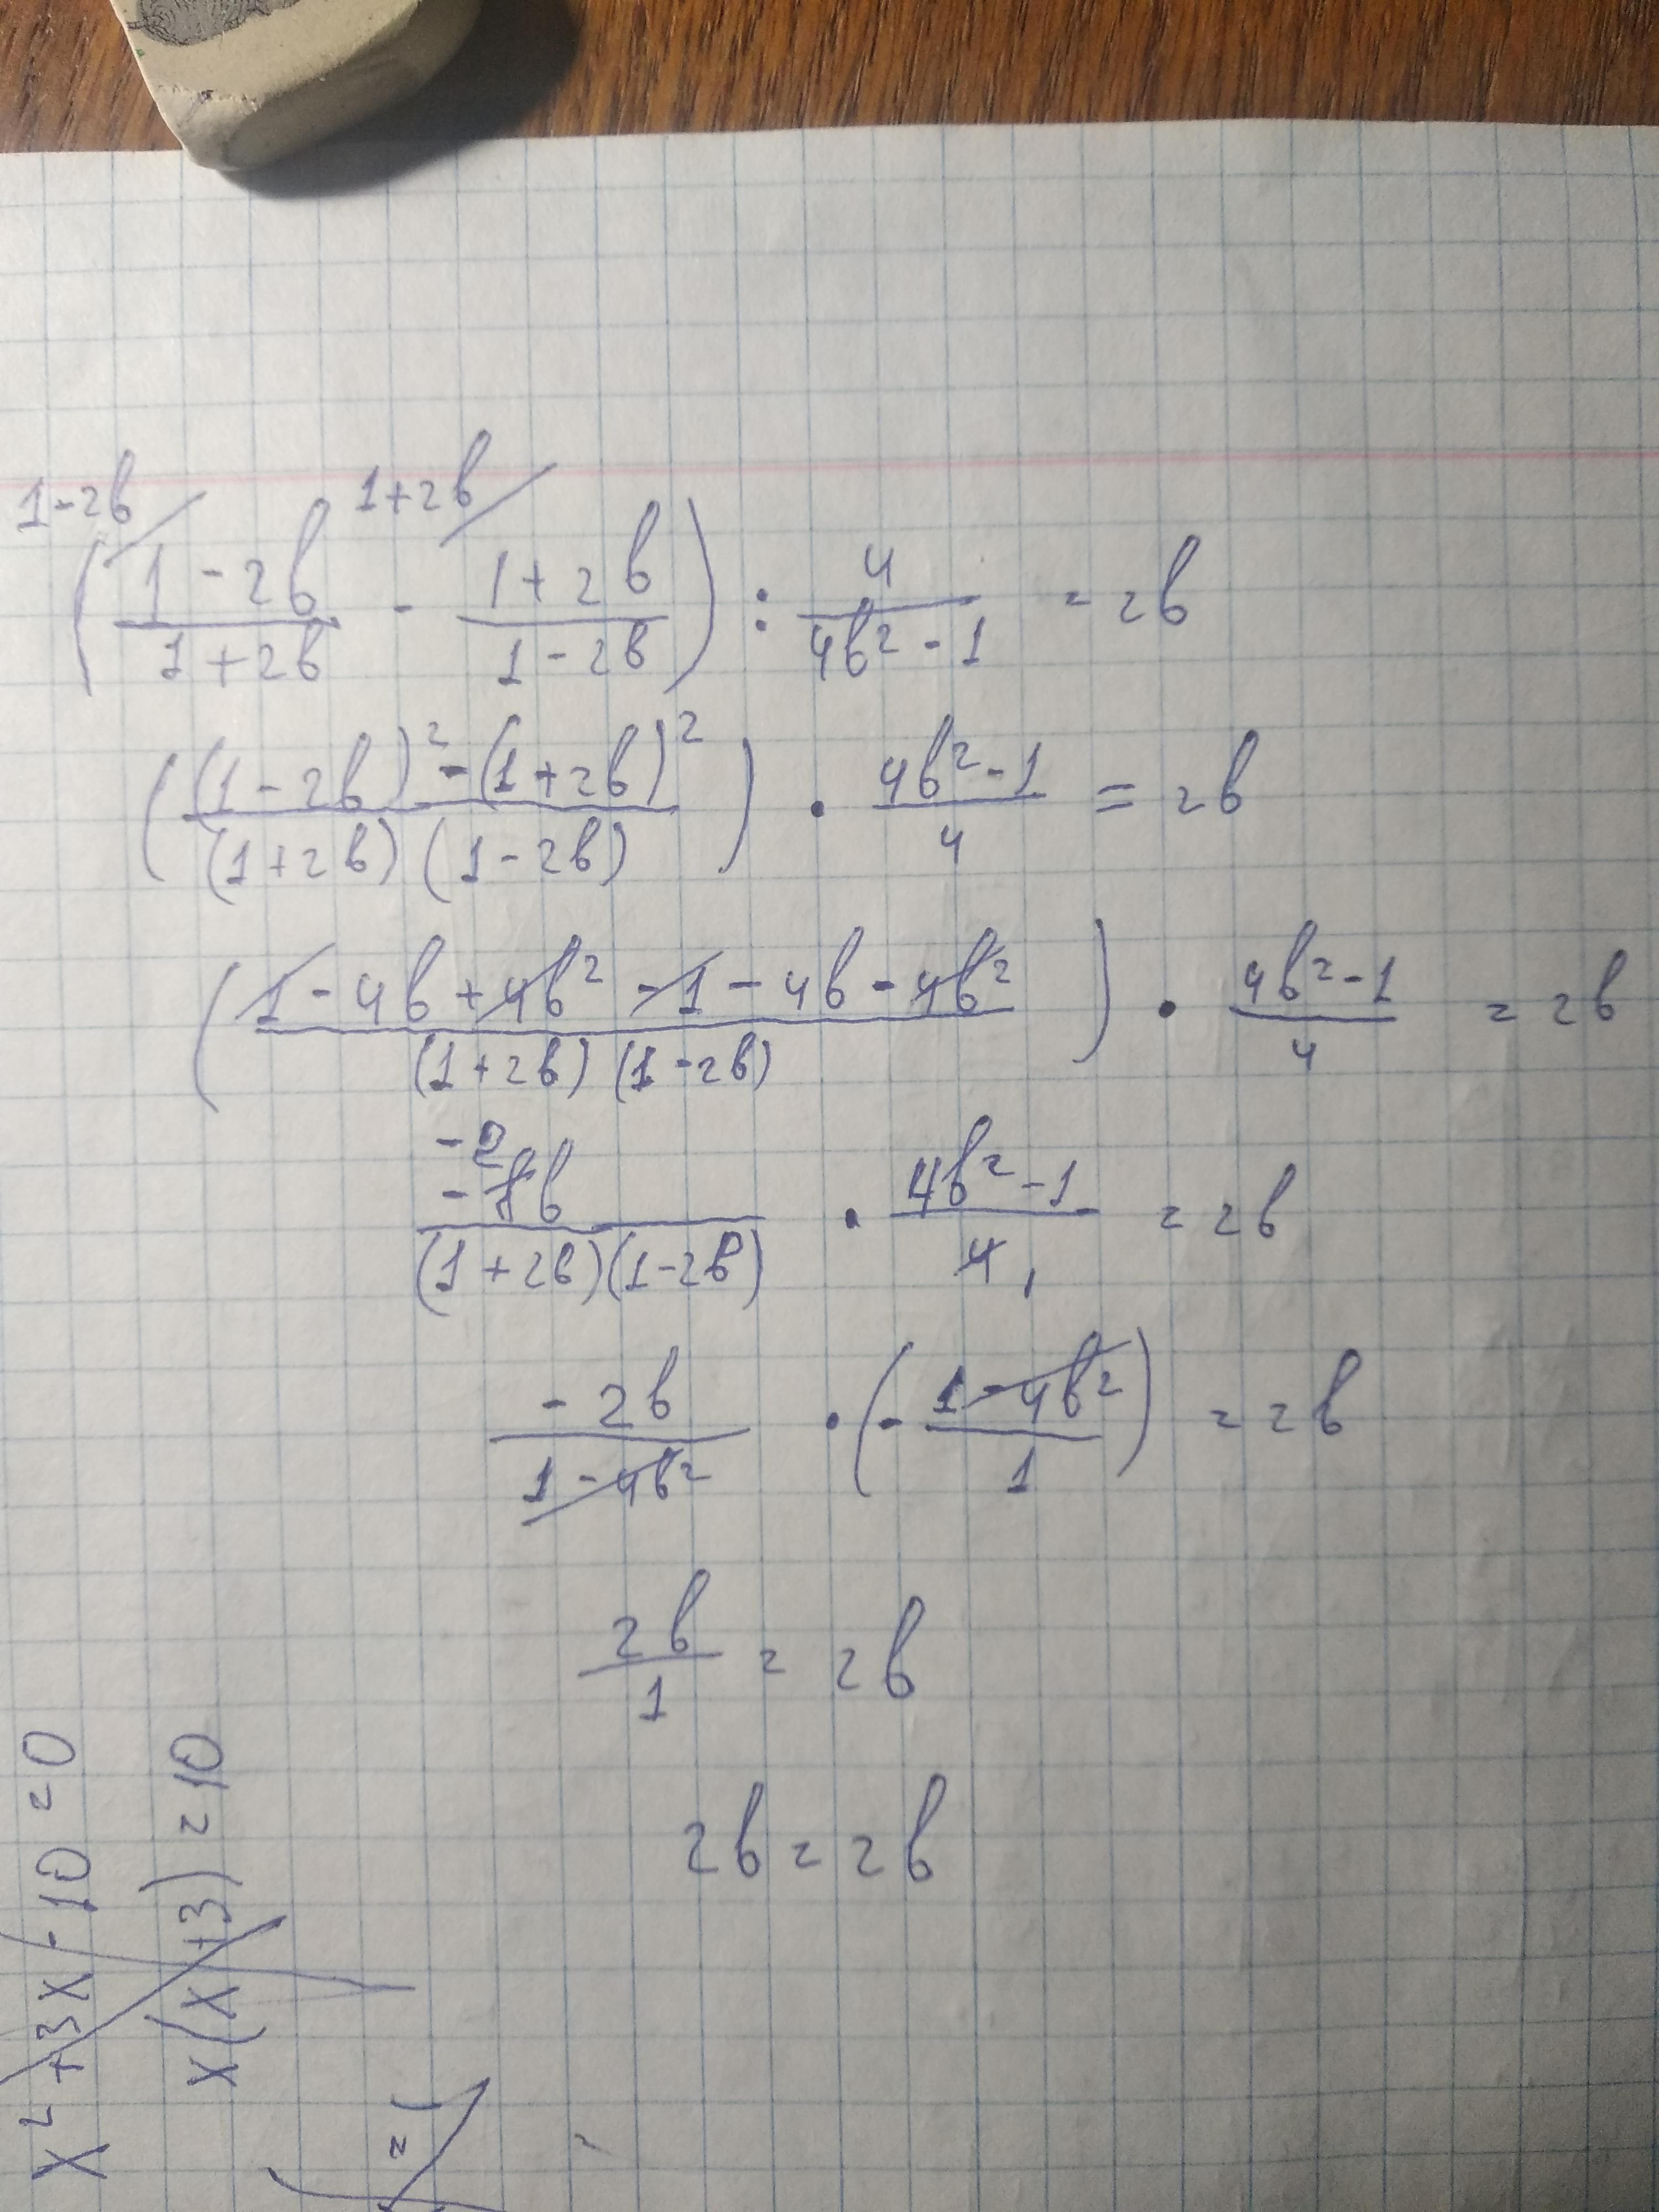 1-2b 1+2b
(1-2b/1+2b - 1+2b/1-2b) : 4/4b²-1 = 2b
((1-2b)²-(1+2b)²/(1+2b)(1-2b)) · 4b²-1/4 = 2b
(1-4b+4b²-1-4b-4b²/(1+2b)(1-2b)) · 4b²-1/4 = 2b
-2
-8b/(1+2b)(1-2b) · 4b²-1/4 1 = 2b
-2b/1-4b² · (-1-4b²/1) = 2b
2b/1 = 2b
2b = 2b
x²+3x-10=0
x(x+3)=10